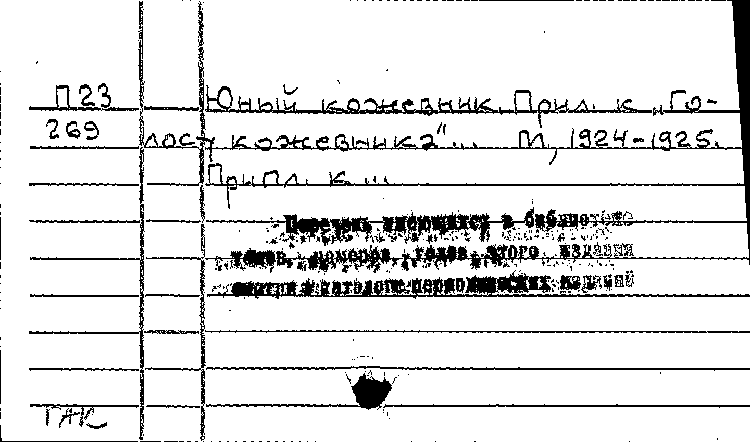 П23 Юный кожевник. Прил. к „Го-
269 лосу кожевника"... М., 1924-1925.
Припл. к ...
Перечень имеющихся в библиотеке
томов, номеров, годов этого издания
смотри в каталоге периодических изданий
ГАК